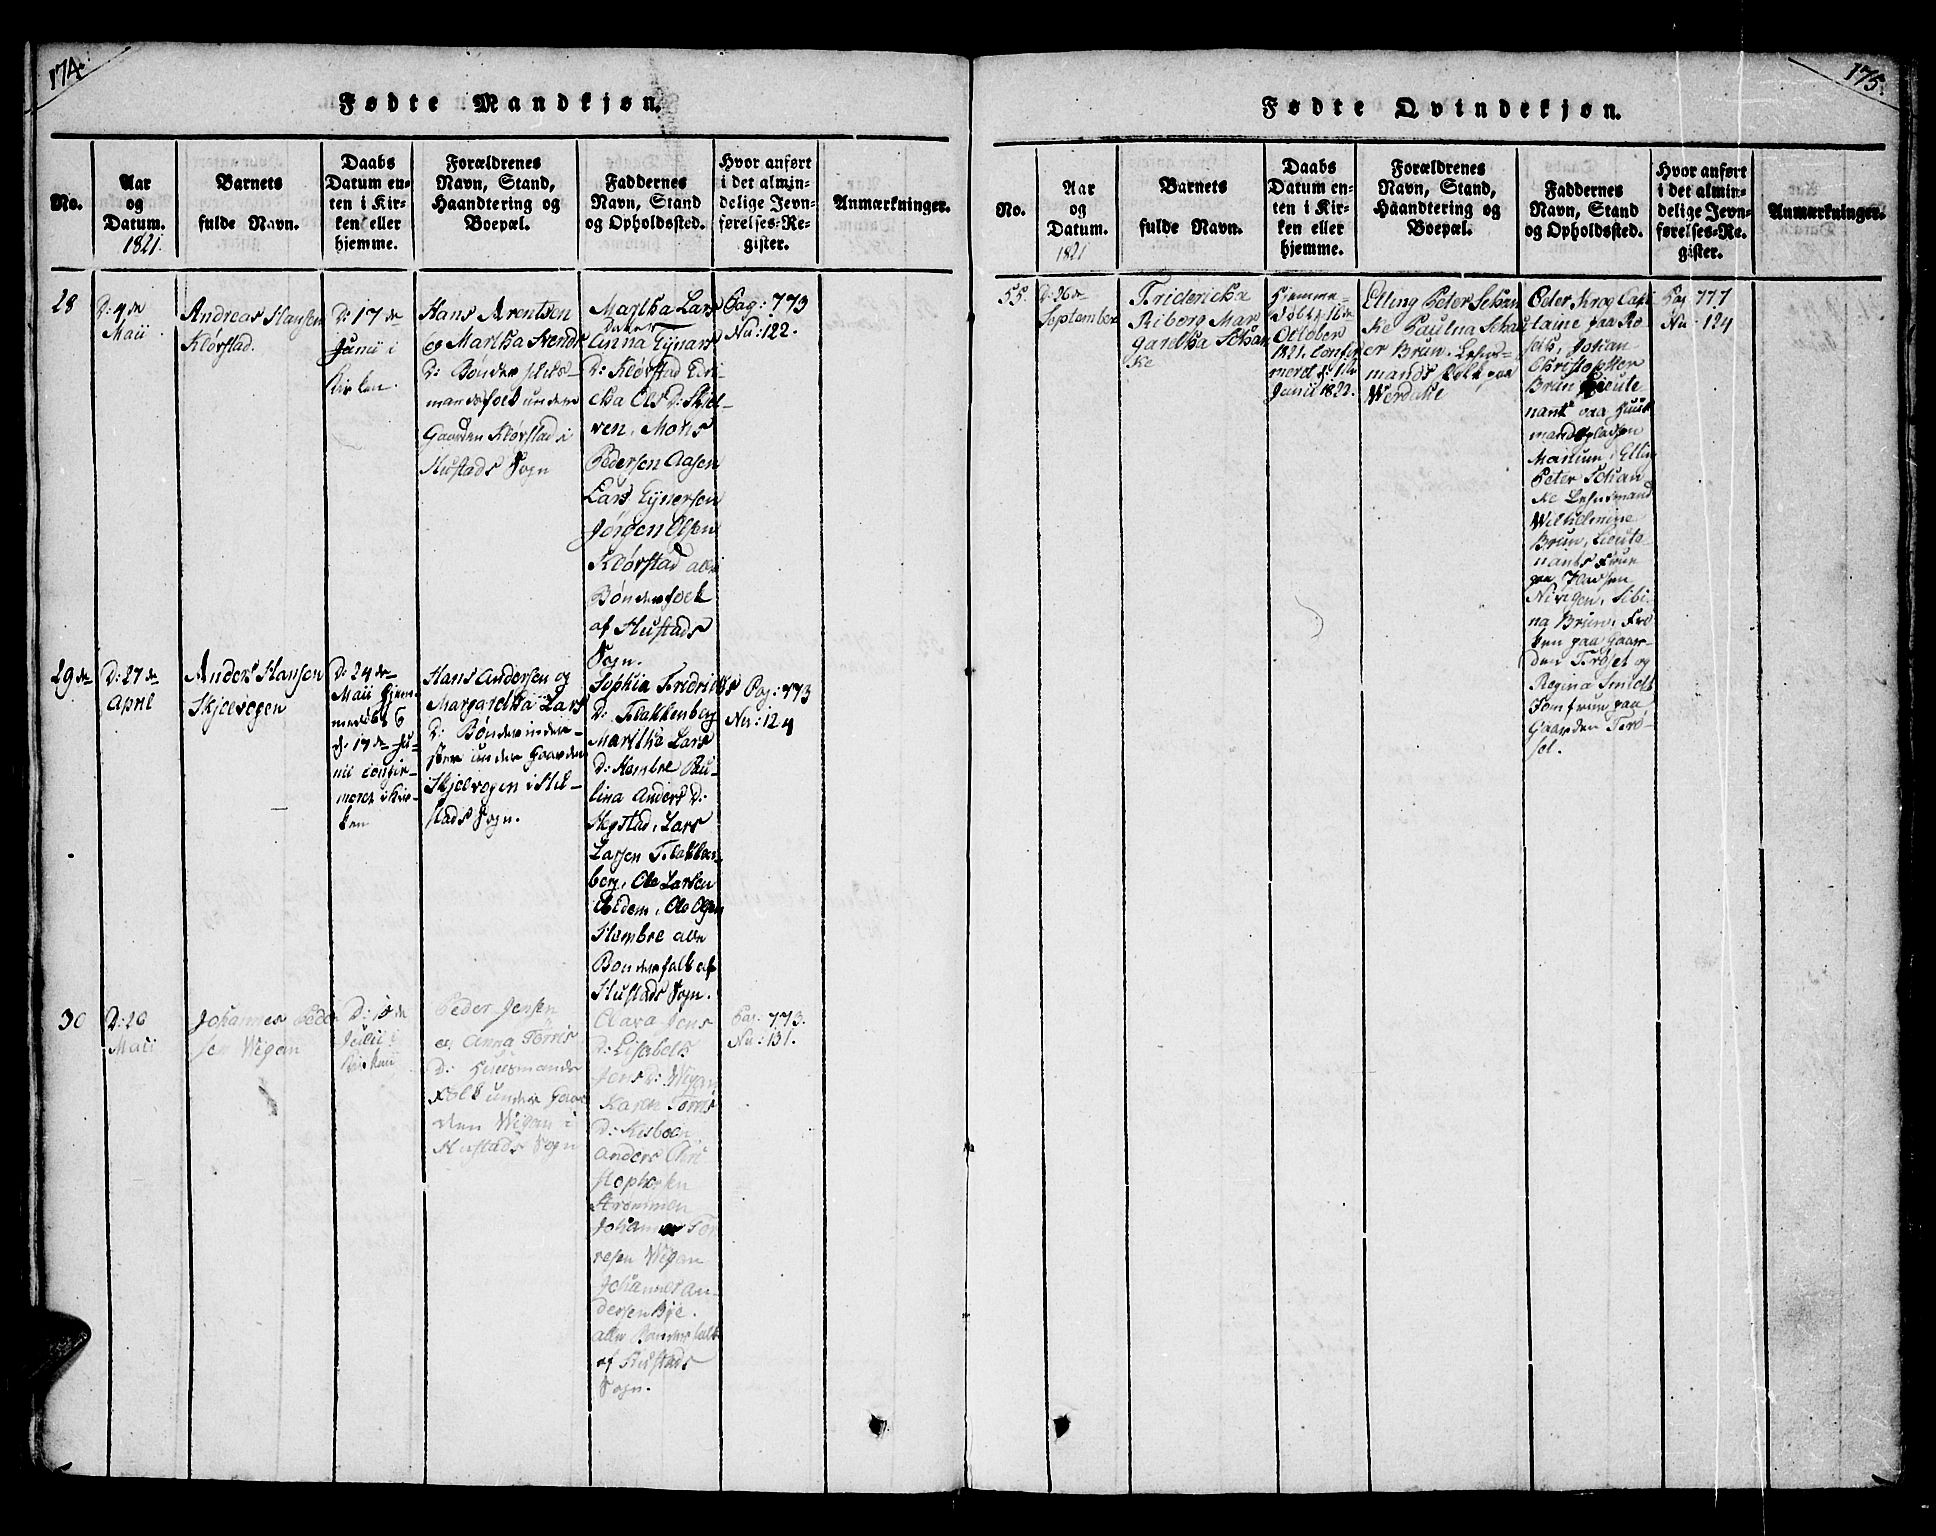 174.
Fødte Mandkjøn.
No.
Aar
og
Datum.
1821.
Barnets
fulde Navn.
Daabs
Datum en-
ten i Kir-
ken eller
hjemme.
Forældrenes
Navn, Stand,
Haandtering og
Boepæl.
Faddernes
Navn, Stand
og Opholdssted.
Hvor anført
i det almin-
delige Jevn-
førelses-Re-
gister.
Anmærkninger.
28
D: 4 de
Maii
Andreas Hansen
Klørstad.
D: 17 de
Junii i
Kirken.
Hans Arentsen
og Martha
D: Bønder
mandsfolk under
Gaarden Klørstad i
Hustads Sogn
Magtha Lars
Datter
Anna Eynars
D: Klørstad
cka Ols D:
ren, Mons
Pedersen Aasen
Lars Eynersen
Jørgen Olsen
Klørstad alle
Bønderfolk
af Hustads
Sogn.
Pag: 773
Nu: 122.
29 de
D: 27 de
April
Anders Hansen
Skjelvogen
D: 24 de
Maii hjem-
medøbt
d: 17 de Ju-
nii confir-
meret i Kir-
ken
Hans Andersen og
Margaretha Lars
D: Bønder inder-
ster under Gaarden
Skjelvogen i Hu-
stads Sogn.
Sophia Fridrichs
D: Flakkenberg
Martha Lars
D: Hembre Pau-
lina Anders D:
Hegstad, Lars
Larsen Flakken-
berg, Ole Larsen
Ole Olsen
Hembre alle
Bønderfolk af
Hustads Sogn.
Pag: 773
Nu: 124
30
D: 20
Maii
Johannes Peder
sen Wigan
D: 15 de
Julii i
Peder Jensen
og Anna Torris
D: Huusmands
Folk under Gaar
den Wigan i
Hustads Sogn
Clara Jens
D: Lisabeth
Jens D: Wigan
Karen Torris
D:
Anders Chri
stophersen
Strømmen
Johannes Tor
resen Wigan
Johannes An-
dersen Bye.
alle Bønderfolk
af Hustads
Sogn.
Pag: 773.
Nu: 131.
175.
Fødte Qvindekjøn.
No.
Aar
og
Datum.
1821
Barnets
fulde Navn.
Daabs
Datum en-
ten i Kir-
ken eller
hjemme.
Forældrenes
Navn, Stand,
Haandtering og
Boepæl.
Faddernes
Navn, Stand
og Opholdssted.
Hvor anført
i det almin-
delige Jevn-
førelses-Re-
gister.
Anmærkninger.
55.
D: 26 de
September
Fridericha
Riborg Mar
garetha Schan
ke
Hjemme-
døbt d: 16 de
October
1821. Confir
meret d:
Junii 1822.
Elling Peter Schan
ke Paulina
Brun. Lehns-
mands Folk paa
Werdalle
Peter Krog Capi
taine paa
Johan
Christopher
Brun Lieute
nant paa Huus
mandspladsen
Marium, Elling
Peter Schan
ke Lehnsmand
Wilhelmine
Brun, Lieute-
nants Frue
paa Pladsen
Sibi-
na Brun, Frø
ken paa Gaar-
den og
Regina Smidt
Jomfrue paa
Gaarden
Pag 777
Nu: 124